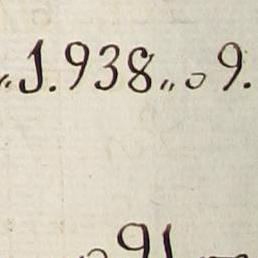 „1.938„ o 9.
91